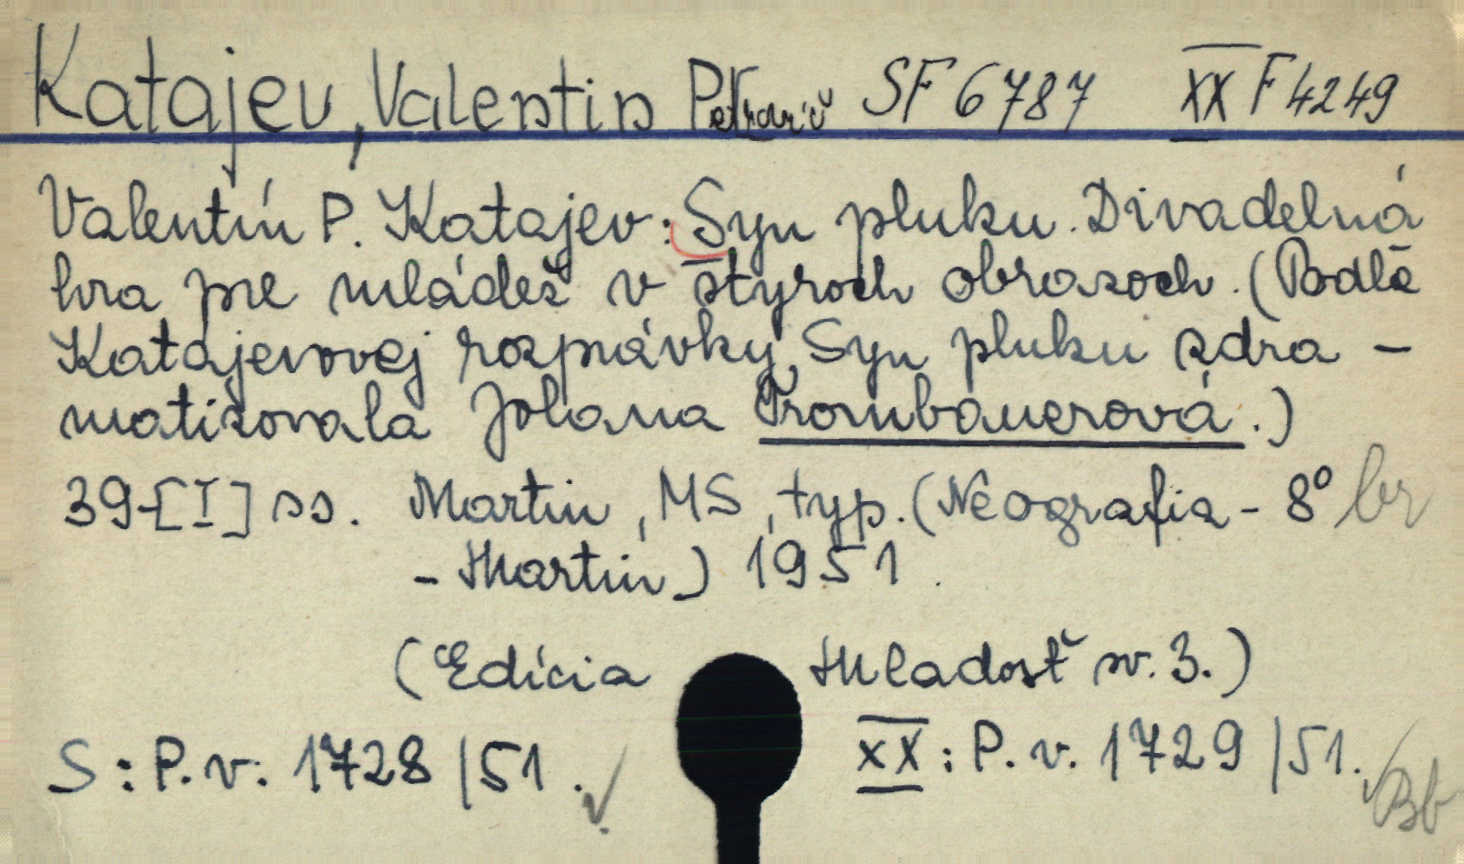 Katajev, Valentin Petrovič SF 6787 XX F 4249
Valentín P. Katajev: Syn pluku. Divadelná
hra pre mládež v štyroch obrazoch. (Podľa
Katajevovej rozprávky Syn pluku zdra-
matizovala Jolana Trombauerová.)
39-[I] ss. Martin, MS, typ. (Neografia - 8° br
- Martin) 1951.
(Edícia Mladosť sv. 3.)
S: P. v. 1728/51. XX: P. v. 1729/51.
Bb